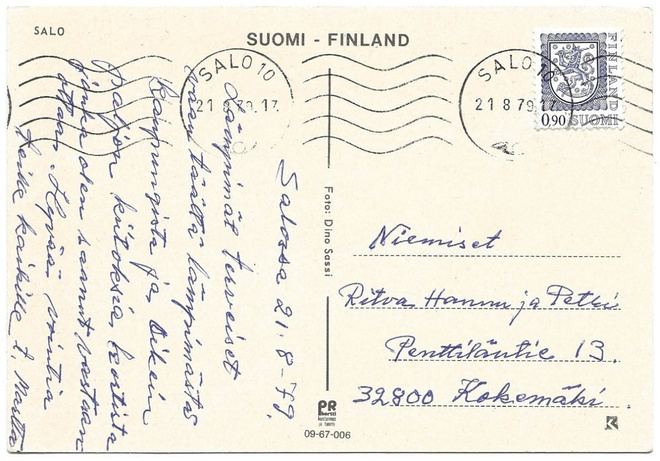 SALO
SUOMI - FINLAND
SALO 10
21.8.79.17.
SALO 10
21 8 79.17
FINLAND
0,90 SUOMI
Salossa 21.8-79.
Lämpimät terveiset
vaan täältä lämpimästä
kaupungista ja oikein
Paljon kiitoksia kortista
jonka olen saanut vastaan
ottaa. Hyvää vointia
teille kaikille t. Martta
Foto: Dino Sassi
Niemiset
Ritva Hannu ja Petki
Penttiläntie 13.
32800 Kokemäki.
PR
09-67-006